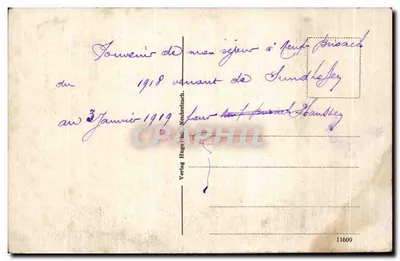 Souvenir de mon séjour à Neuf Brisach
du 1918 venant de Sundhoffen
au 3 Janvier 1919 pour Neuf Brisach
Verlag Hugo Neubreisach.
CPARPHIL
11609